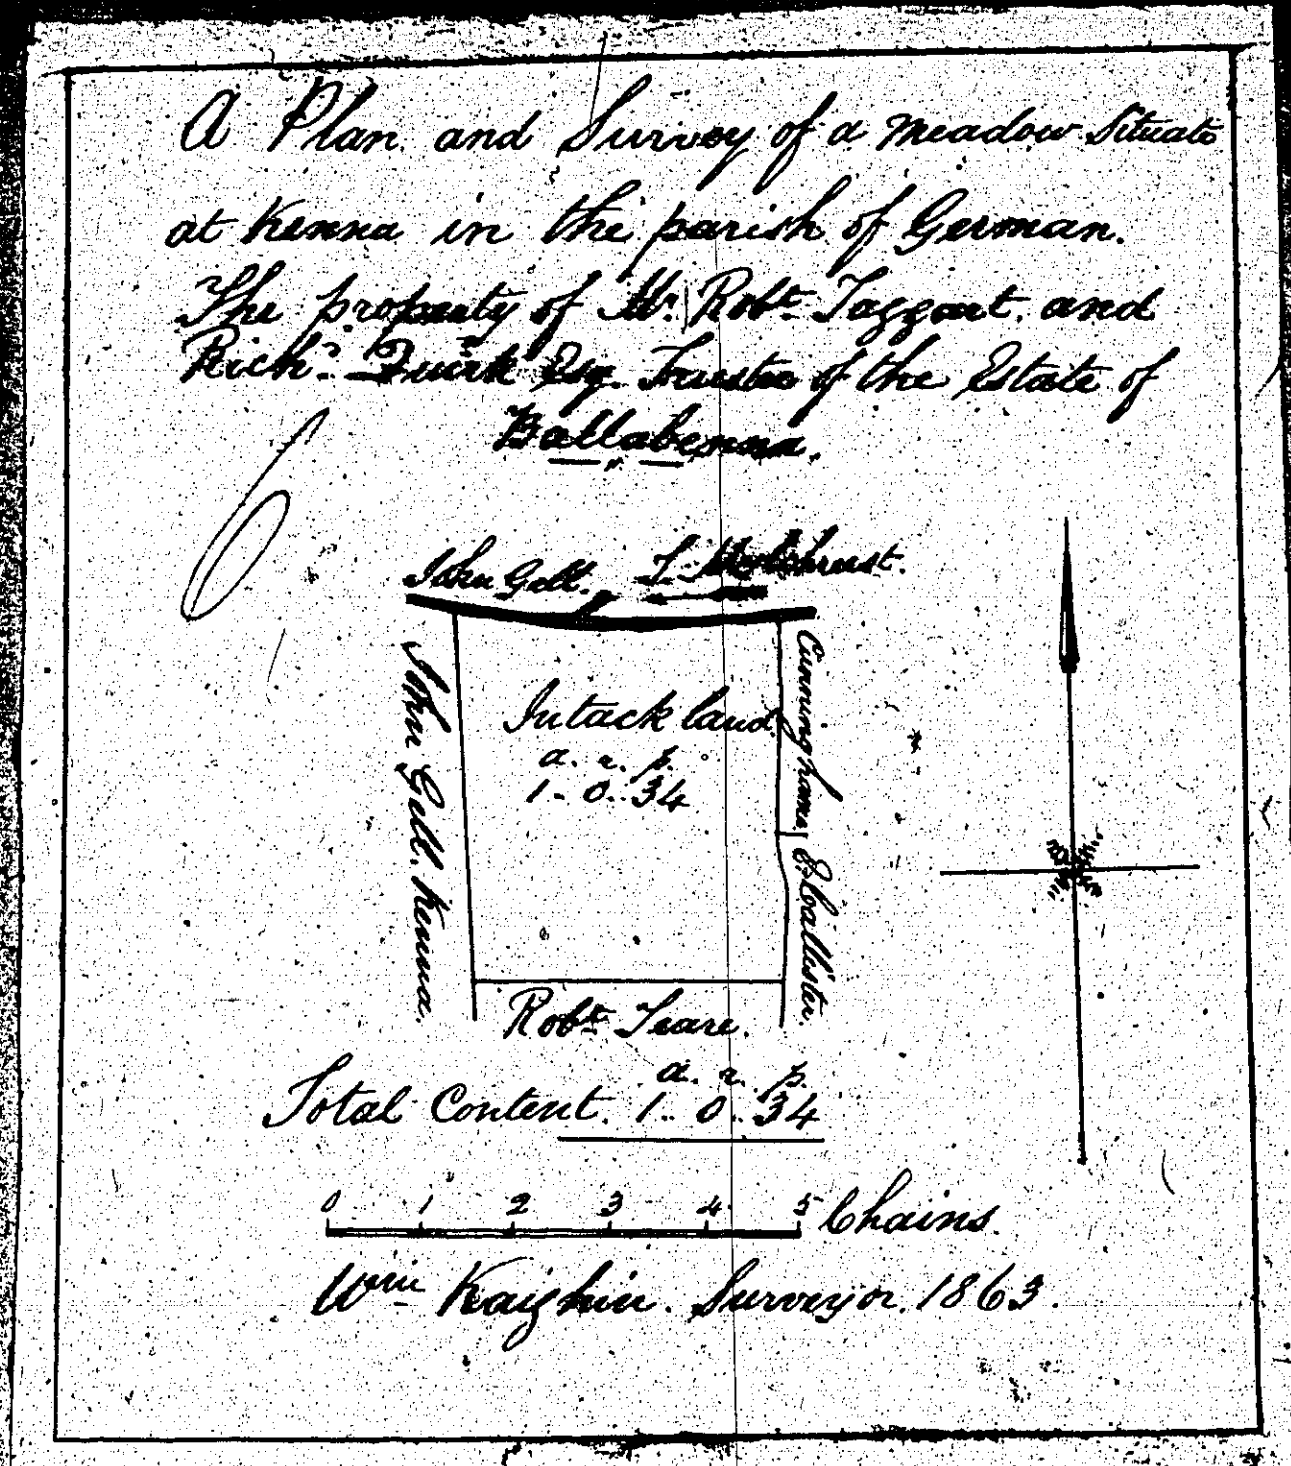 A Plan and Survey of a Meadow Situate
at Kenna in the parish of German.
The property of Mr. Robt. Taggart. and
Richd. Quirk Esq. Trustee of the Estate of
Ballabenna.
John Gell.
John Gell. Kenna.
Intack land.
a. r. p.
1. 0. 34
Cunninghame
Robt. Teare.
a. r. p.
Total Content. 1. 0. 34
0 1 2 3 4 5 Chains.
Wm Kaighin. Surveyor. 1863.